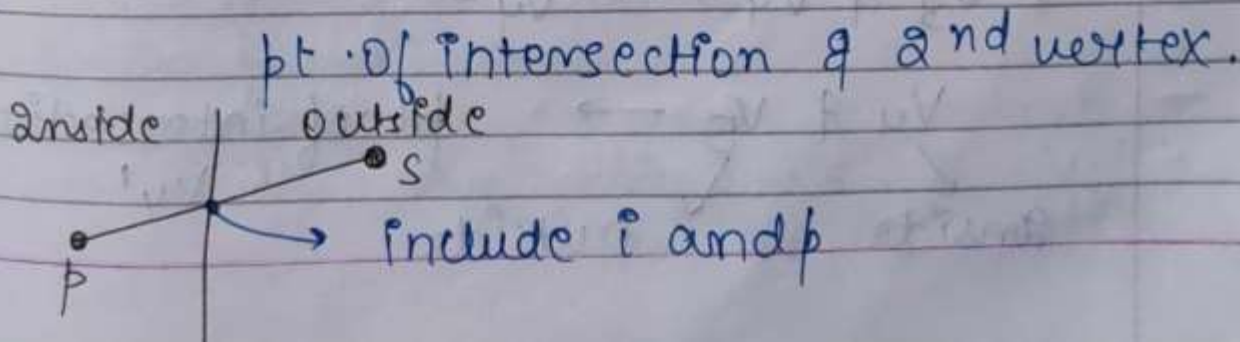 pt. of intersection & 2nd vertex.
inside outside
S
include i and p
p